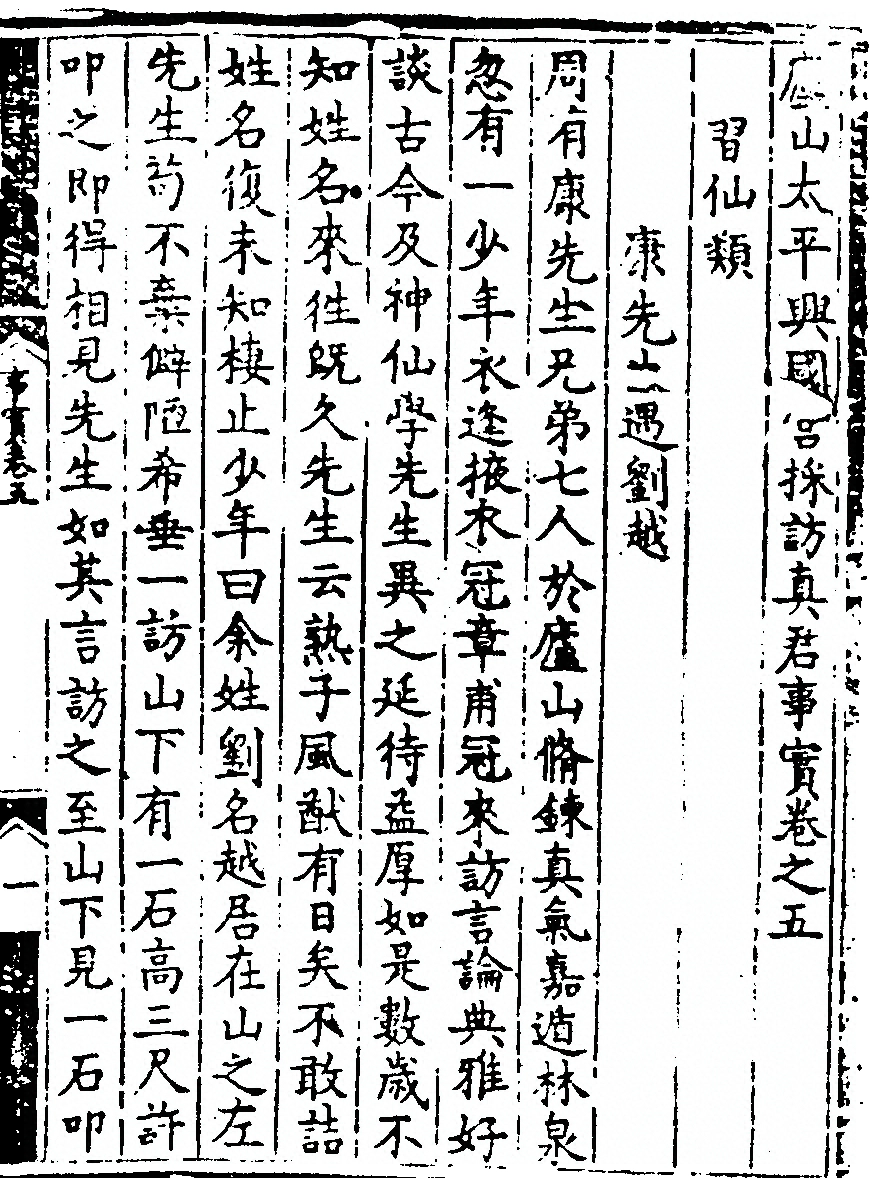 廬山太平興國宮採訪真君事實卷之五
習仙類
康先生遇劉越
周有康先生兄弟七人於廬山脩鍊真氣嘉遁林泉
忽有一少年衣逢掖衣冠章甫冠來訪言論典雅好
談古今及神仙學先生異之延待益厚如是數歲不
知姓名來徃旣久先生云熟子風猷有日矣不敢詰
姓名復未知棲止少年曰余姓劉名越居在山之左
先生苟不棄僻陋希垂一訪山下有一石高三尺許
叩之即得相見先生如其言訪之至山下見一石叩
事實卷五
一